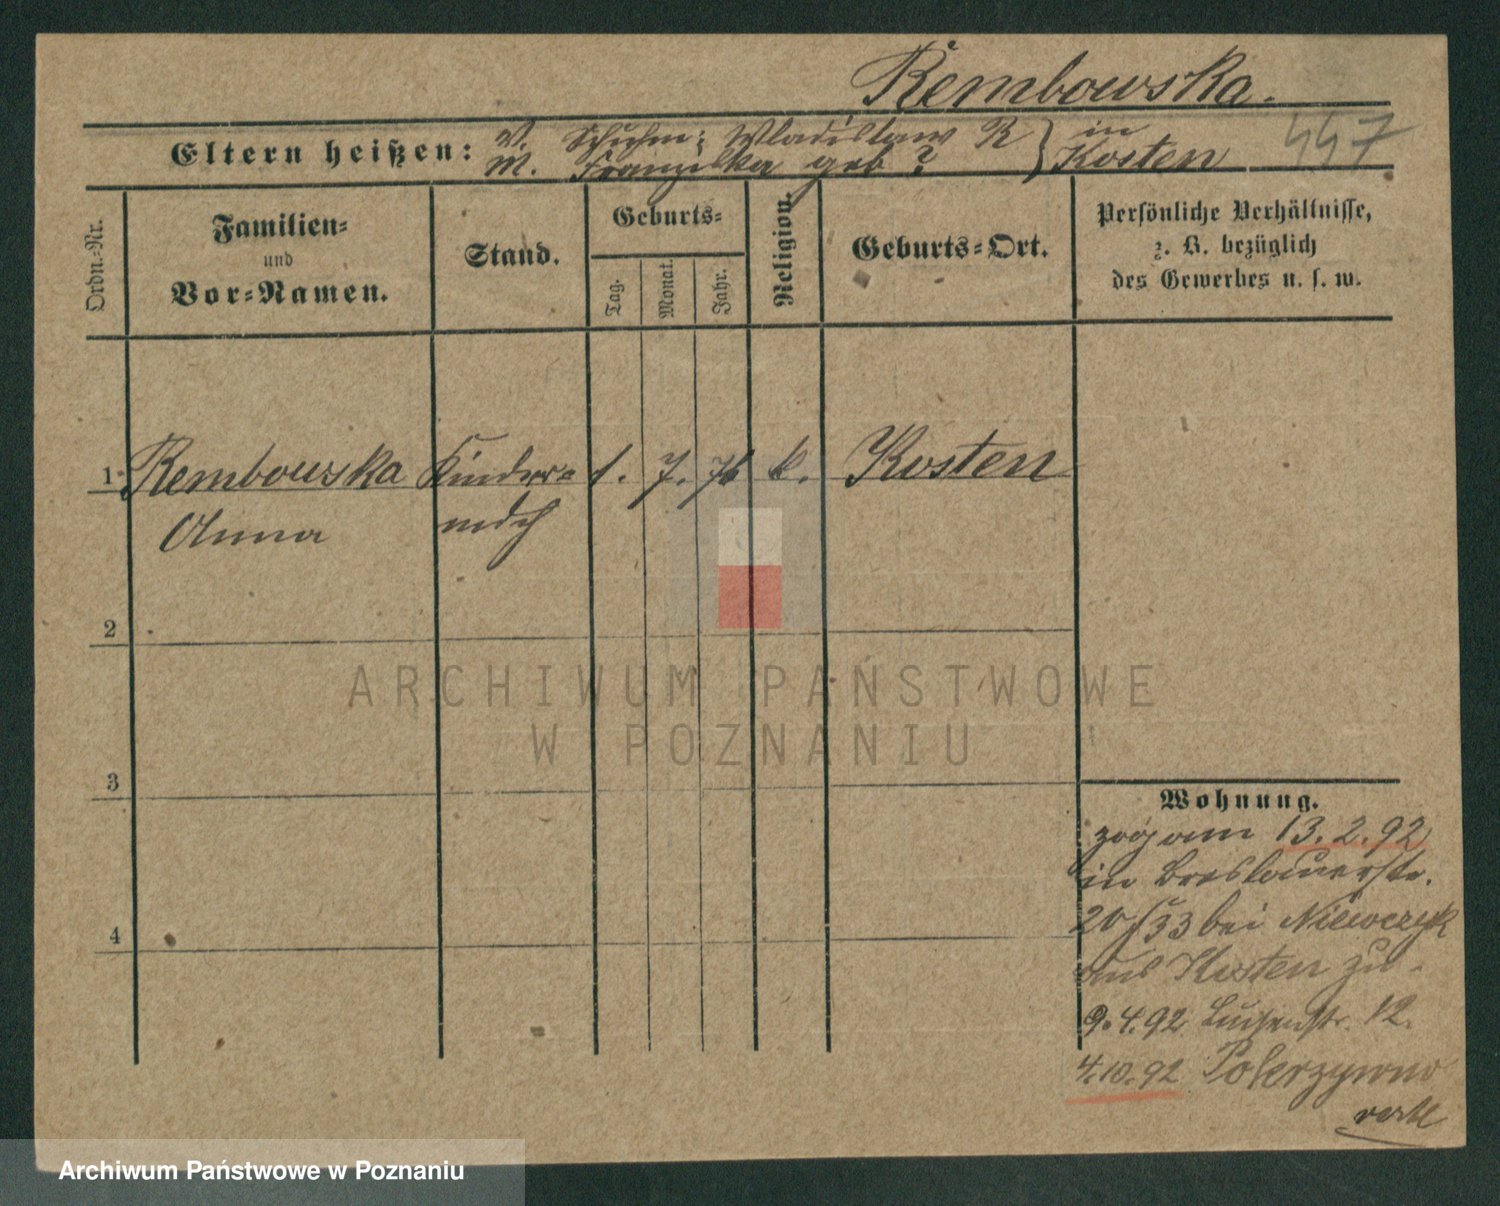 Rembowska.
447
Eltern heißen: V. Schuhm: Wladislaw R } in
M. Franziska geb ? Kosten
Ordn.-Nr.
Familien=
und
Vor=Namen.
Stand.
Geburts=
Tag.
Monat.
Jahr.
Religion.
Geburts=Ort.
Persönliche Verhältnisse,
z. B. bezüglich
des Gewerbes u. s. w.
1 Rembowska Kinder= 1. 7. 76 k. Kosten
Anna mdch
2
3
4
Wohnung.
zog am 13.2.92
in Breslauerstr.
20/33 bei Niewczyk
aus Kosten zu.
9.4.92 Luisenstr. 12.
4.10.92
ARCHIWUM PAŃSTWOWE
W POZNANIU
Archiwum Państwowe w Poznaniu